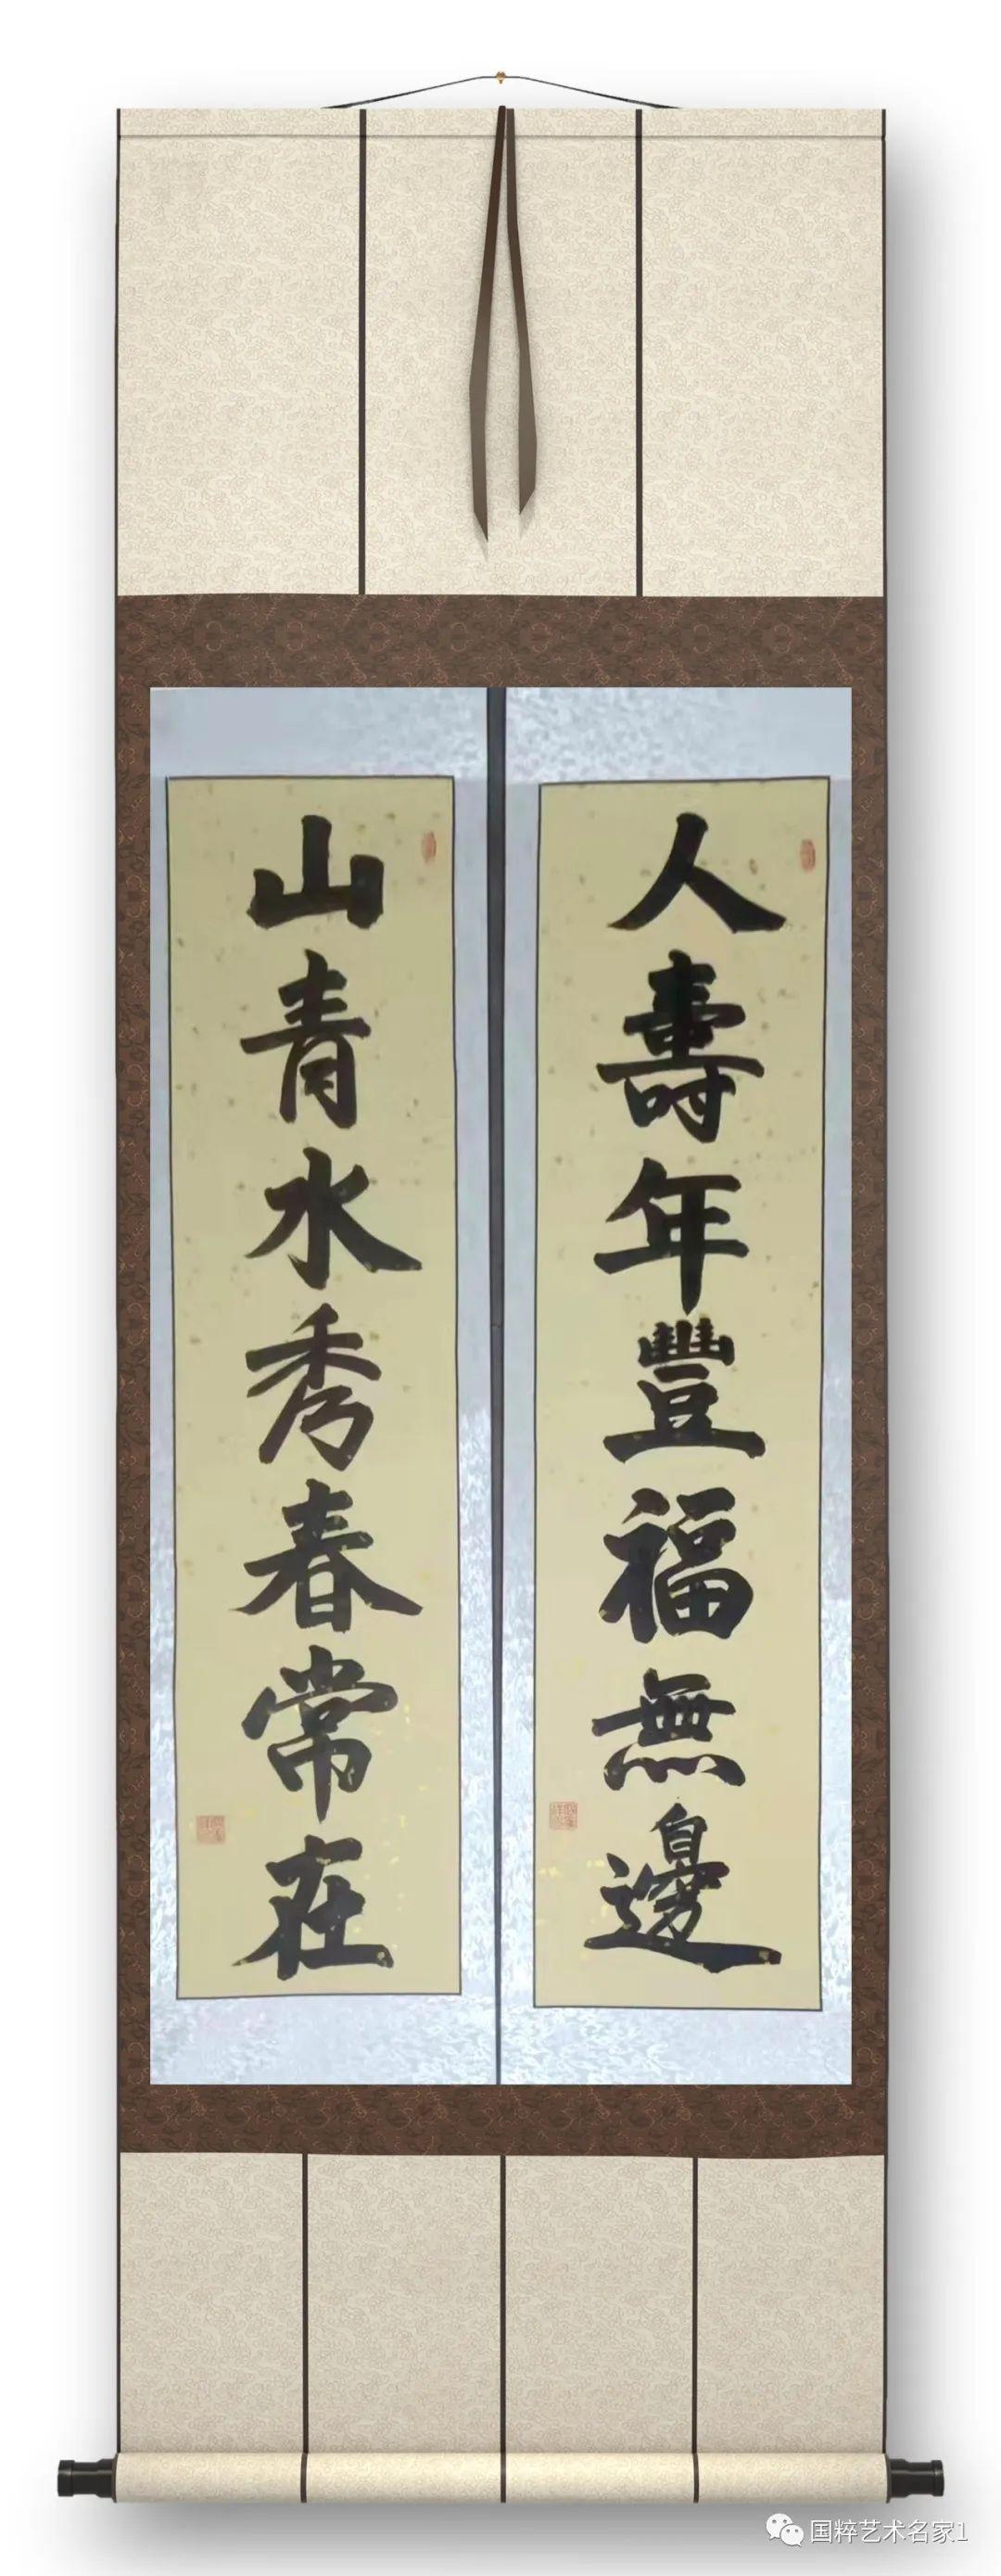 人壽年豐福無邊
山青水秀春常在
国粹艺术名家1